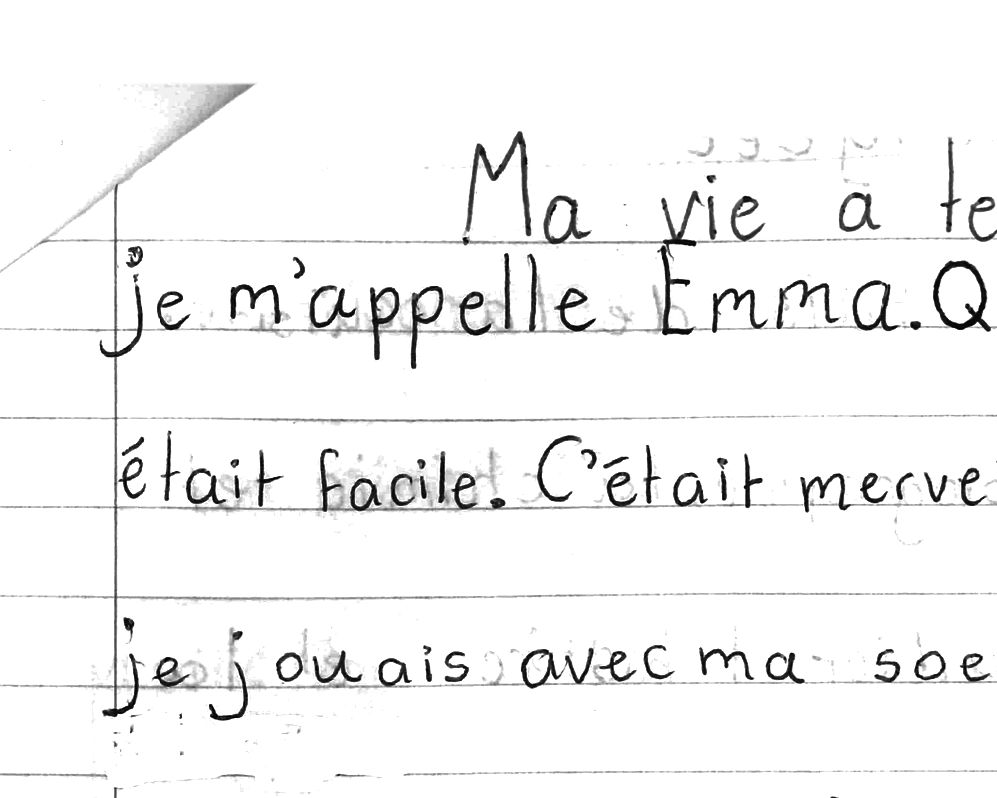 Ma vie à te
je m'appelle Emma. Q
était facile. C'était merve
je jouais avec ma soe